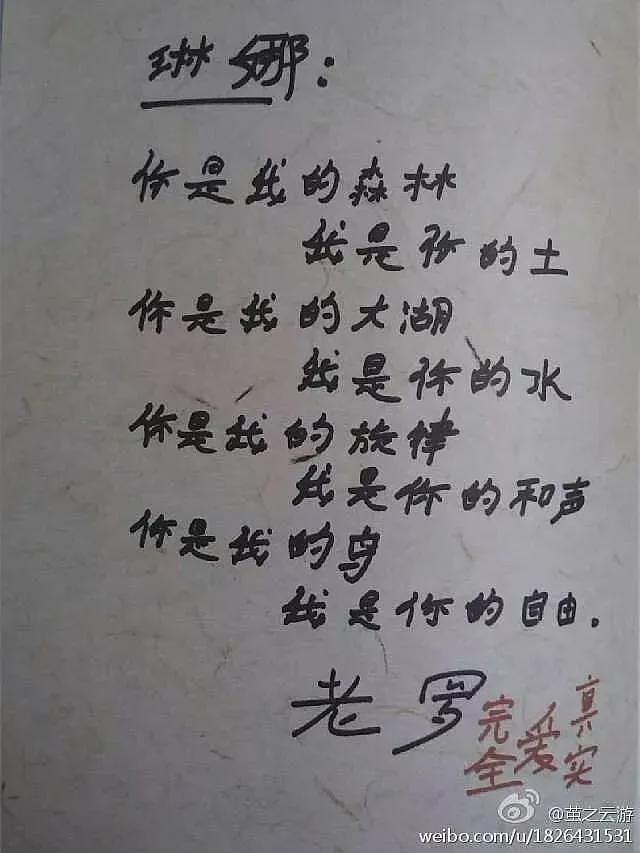 琳娜:
你是我的森林
我是你的土
你是我的大湖
我是你的水
你是我的旋律
我是你的和声
你是我的鸟
我是你的自由.
老罗
完全
爱
真实
@茧之云游
weibo.com/u/1826431531